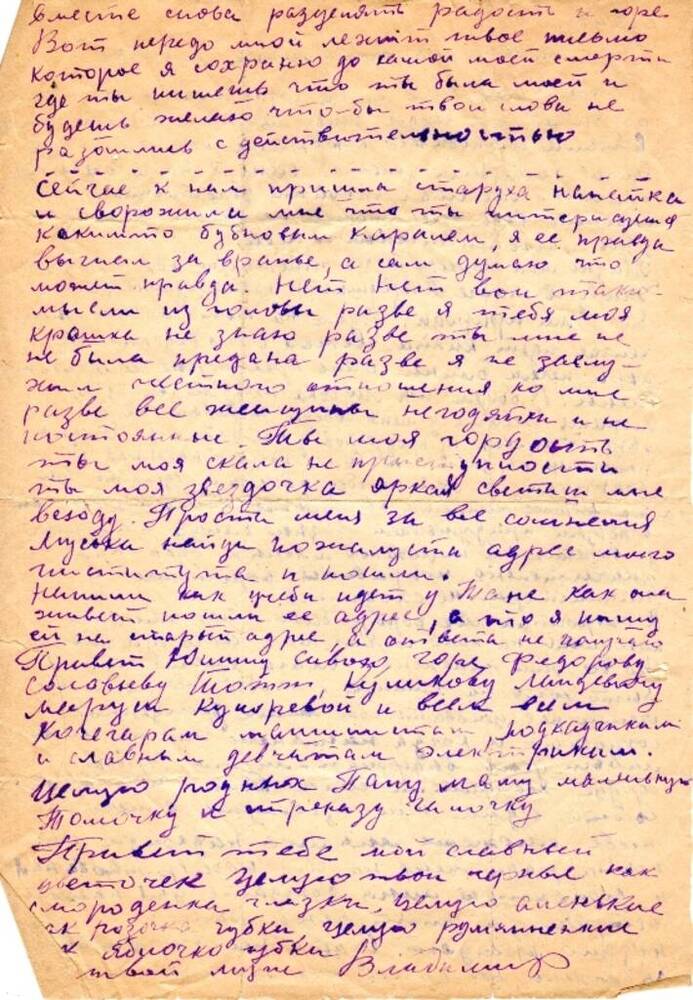 вместе снова разделять радость и горе
Вот передо мной лежит твое письмо
которое я сохраню до самой моей смерти
где ты пишешь что ты была моей и
будешь желаю чтобы твои слова не
разошлись с действительностью
Сейчас к нам пришла старуха нанайка
и сворожила мне что ты интересуешся
какимто бубновым каралем, я ее правда
выгнал за вранье, а сам думаю что
может правда. Нет Нет вон такие
мысли из головы разве я тебя моя
крошка не знаю разве ты мне не
не была предана разве я не заслу-
жил честного отношения ко мне
разве все женщины негодяйки и не
постоянные. Ты моя гордость
ты моя скала не преступности
ты моя звездочка яркая светиш мне
всюду. Прости меня за все сомнения
Муська найди пожалуста адрес моего
института и пошли.
Напиши как учеба идет у Тане как она
живет пошли ее адрес, а то я пишу
ей на старый адрес, а ответа не получаю
Привет Юшину горе Федорову
Соловьеву Тотти, Куликову
Маруси Кухоревой и всем всем
Кочегарам машинистам,
и славным девчатам электрикам.
Целую родных Папу маму маленькую
Томочку и стреказу галочку
Привет тебе мой славный
цветочек целую твои черные как
смороденка глазки, целую аленькие
как розочка губки, целую румяненькие
к яблочко
твой Владимир